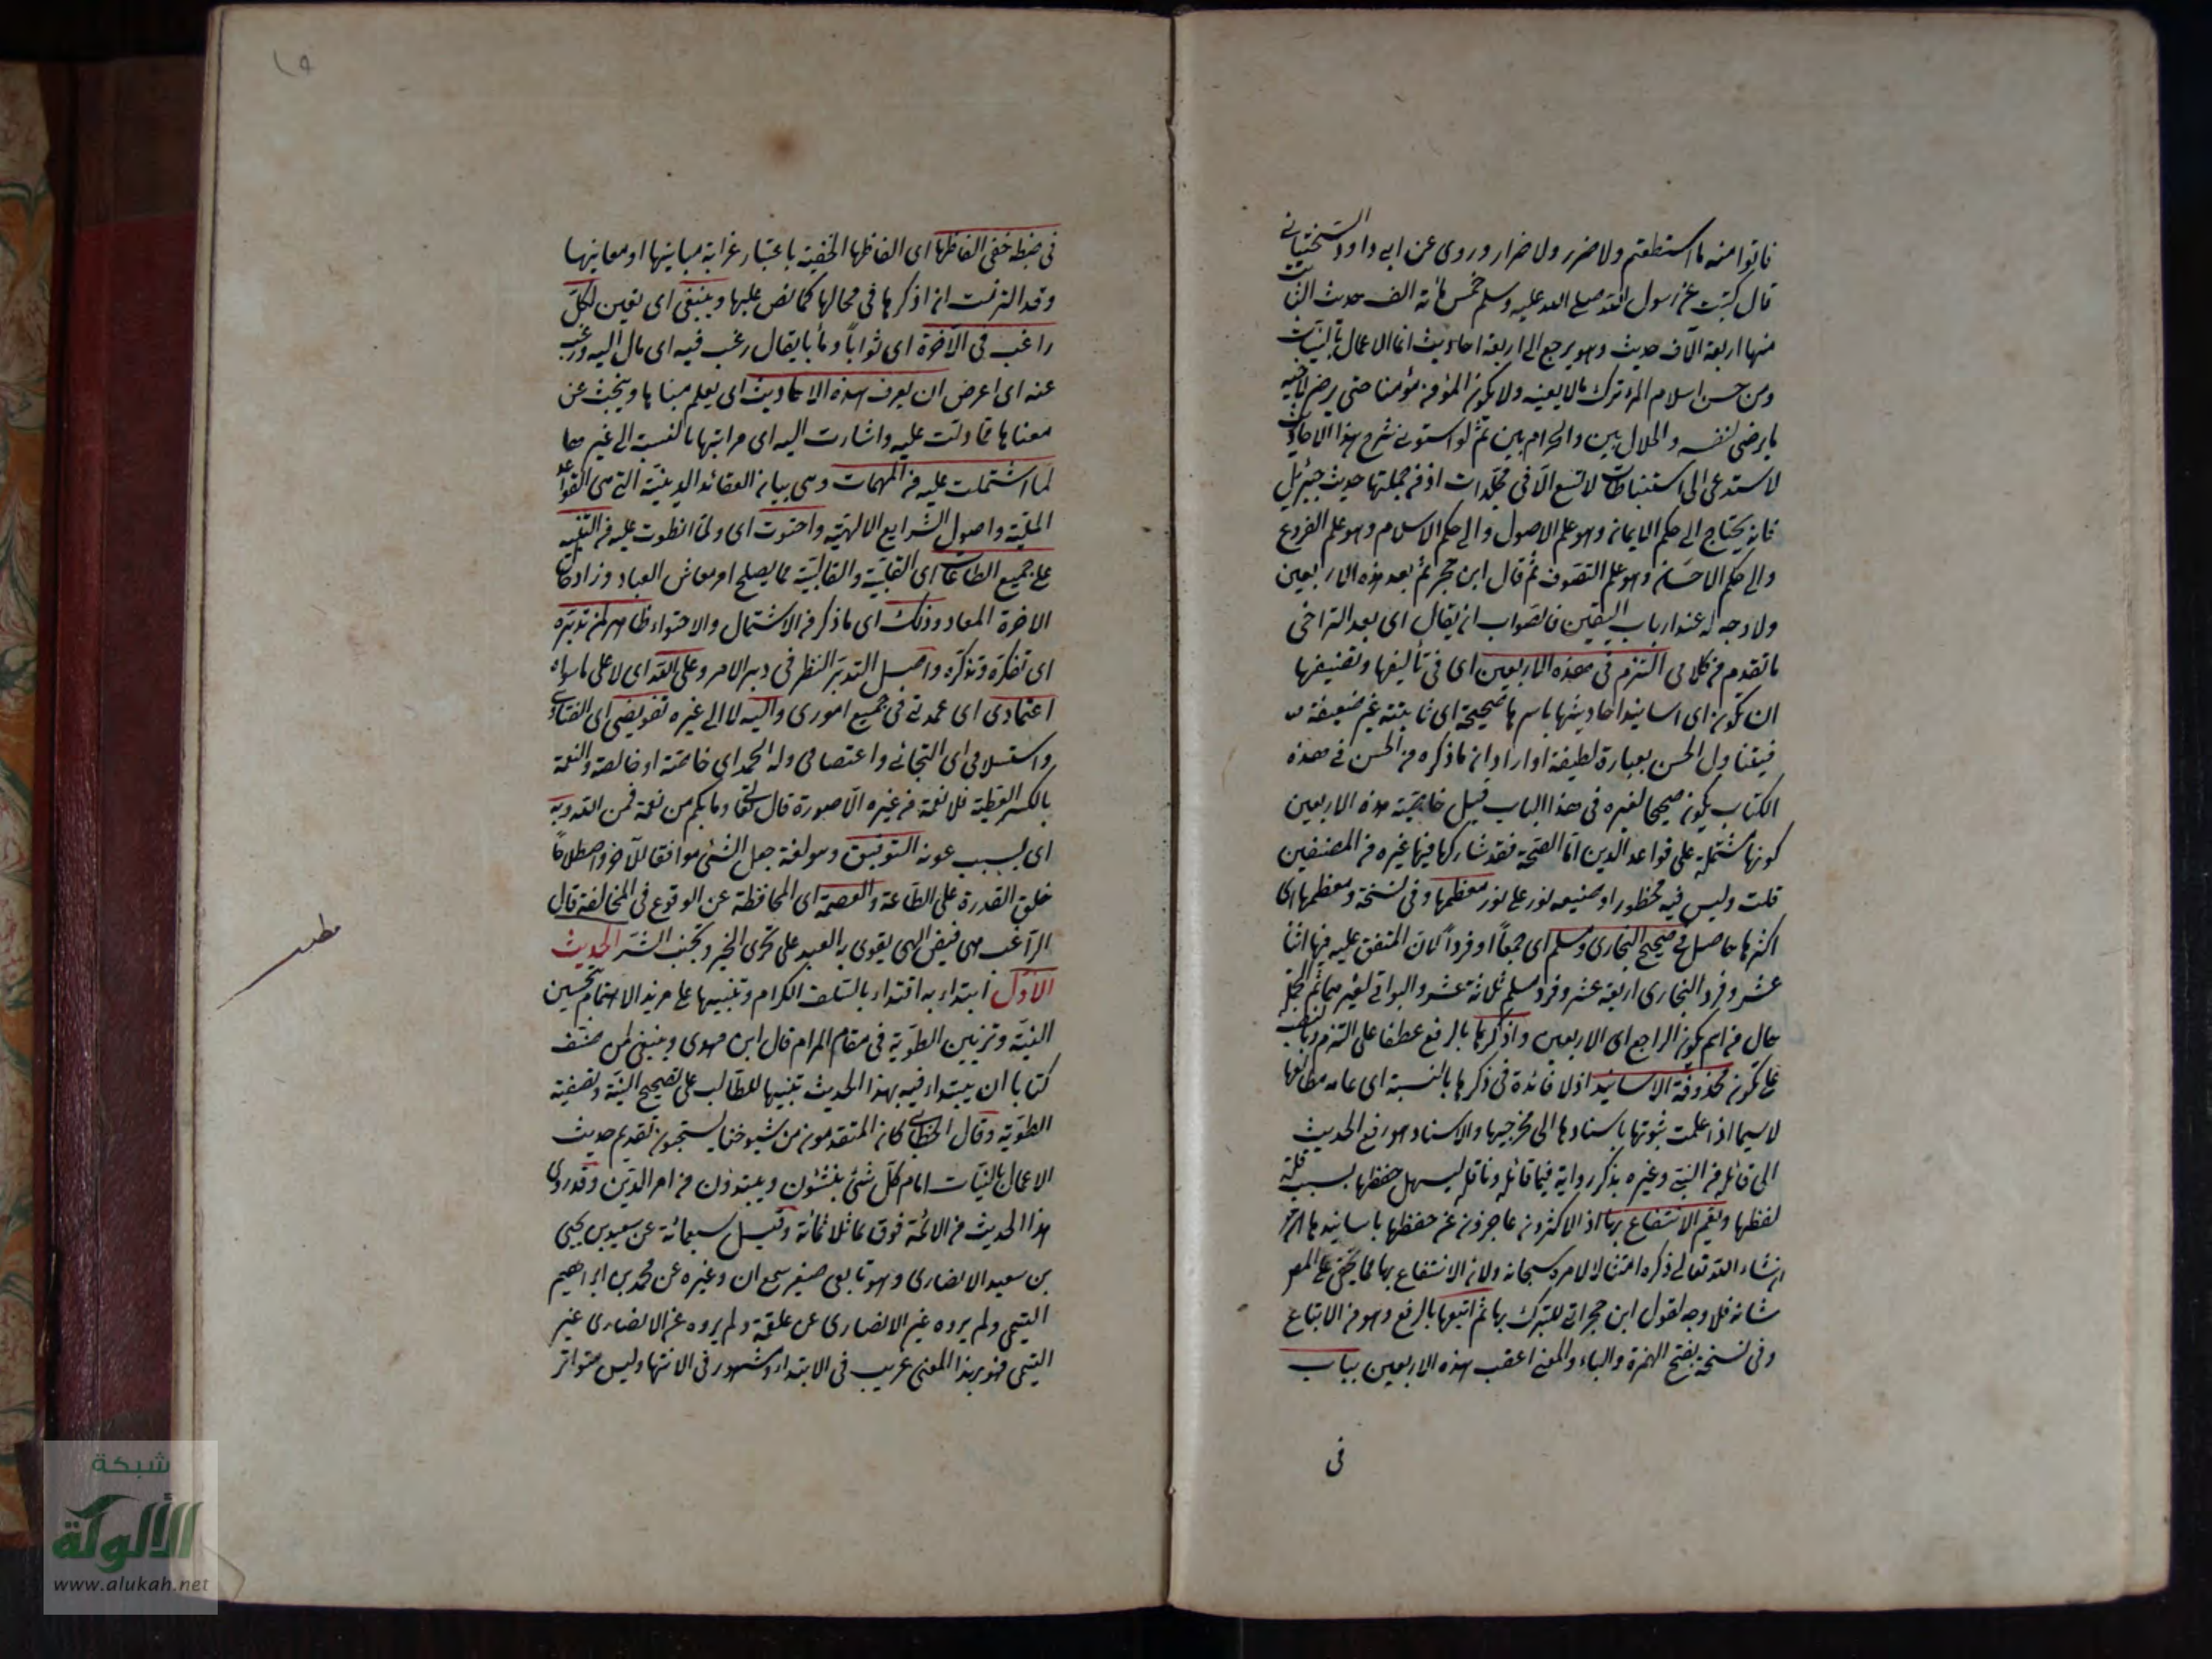 فاتوا منه ما استطعتم ولا ضرر ولا ضرار وروى عن ابى داود السختيانى
قال كتبت عن رسول الله صلى الله عليه وسلم خمس مائة الف حديث الثابت
منها اربعة آلاف حديث وهو يرجع الى اربعة احاديث انما الاعمال بالنيات
ومن حسن اسلام المرء تركه ما لا يعنيه ولا يكون المؤمن مؤمنا حتى يرضى لاخيه
ما يرضى لنفسه والحلال بين والحرام بين ثم لو استوفى شرح هذا الاحاديث
لاستدعى الى استنباطات لا تسع الا فى مجلدات اذ من جملتها حديث جبرئيل
فانه يحتاج الى حكم الايمان وهو علم الاصول والى حكم الاسلام وهو علم الفروع
والى حكم الاحسان وهو علم التصوف ثم قال ابن حجر ثم بعد هذه الاربعين
ولا وجه له عند ارباب اليقين فالصواب ان يقال اى بعد التراخى
ما تقدم من كلامى التزم فى هذه الاربعين اى فى تأليفها وتصنيفها
ان تكون اى اسانيد احاديثها باسرها صحيحة اى ثابتة غير ضعيفة
فيتناول الحسن بعبارة لطيفة او اراد ان ما ذكره من الحسن فى هذه
الكتاب يكون صحيحا لغيره فى هذا الباب قيل خاصية هذه الاربعين
كونها مشتملة على قواعد الدين اما الصحة فقد شاركها فيها غيره من المصنفين
قلت وليس فيه محظور او صنيعه نور على نور معظمها وفى نسخة ومعظمها اى
اكثرها حاصل فى صحيح البخارى ومسلم اى جمعا او فردا كان المتفق عليه فيها اثنا
عشر وفرد البخارى اربعة عشر وفرد مسلم ثلاثة عشر والبواقى لغيرهما ثم الجملة
حال من اسم يكون الراجع اى الاربعين واذكرها بالرفع عطفا على التزم وبالنصب
على تكون محذوفة الاسانيد اذ لا فائدة فى ذكرها بالنسبة اى عامة مطالعها
لاسيما اذا علمت ثبوتها باسنادها الى مخرجيها والاسناد هو رفع الحديث
الى قائله من النبى وغيره بذكر رواية فيما قائله وناقله ليسهل حفظها بسبب قلة
لفظها ويعم الانتفاع بها اذ الاكثرون عاجزون عن حفظها باسانيدها
ان شاء الله تعالى ذكره امتثالا لامره سبحانه ولان الانتفاع بها مما يخفى على
شانه فلا وجه لقول ابن حجر اتى للتبرك بها ثم اتبعها بالرفع وهو من الاتباع
وفى نسخة بفتح الهمزة والباء والمعنى اعقب هذه الاربعين بباب
فى
فى ضبط خفى الفاظها اى الفاظها الخفية باعتبار غرابة مبانيها او معانيها
وقد التزمت ان اذكرها فى محالها كما نص عليها وينبغى اى يتعين لكل
راغب فى الآخرة اى ثوابا ومآبا يقال رغب فيه اى مال اليه ورغب
عنه اى اعرض ان يعرف هذه الاحاديث اى يعلم مبناها ويبحث عن
معناها مما دلت عليه واشارت اليه اى مراتبها بالنسبة الى غيرها
لما اشتملت عليه من المهمات وهى بيان العقائد الدينية التى هى القواعد
الملية واصول الشرايع الالهية واحتوت اى ولما انطوت عليه من التنبيه
على جميع الطاعات اى القلبية والقالبية مما يصلح امر معاش العباد وزاد
الاخرة المعاد وذلك اى ما ذكر من الاشتمال والاحتواء ظاهر لمن تدبره
اى تفكره وتذكره واصل التدبر النظر فى دبر الامر وعلى الله اى لا على ما سواه
اعتمادى اى عمدتى فى جميع امورى واليه لا الى غيره تفويضى اى
واستسلامى اى التجائى واعتصامى وله الحمد اى خاصة او خالصة والنعمة
بالكسر العطية فلا نعمة من غيره الا صورة قال تعالى وما بكم من نعمة فمن الله وبه
اى بسبب عونه التوفيق وهو لغة جعل الشئ موافقا للآخر واصطلاحا
خلق القدرة على الطاعة والعصمة اى المحافظة عن الوقوع فى المخالفة قال
الراغب هى فيض الهى يقوى به العبد على تحرى الخير وتجنب الشر الحديث
الاول ابتداء به اقتداء بالسلف الكرام وتنبيها على مزيد الاهتمام بتحسين
النية وتزيين الطوية فى مقام المرام قال ابن مهدى وينبغى لمن صنف
كتابا ان يبتداء فيه بهذا الحديث تنبيها للطالب على تصحيح النية وتصفية
الطوية وقال الخطابى كان المتقدمون من شيوخنا يستحبون تقديم حديث
الاعمال بالنيات امام كل شئ ينشئون ويبتدؤن من امر الدين وقد روى
هذا الحديث من الائمة فوق ثلاثمائة وقيل سبعمائة عن سعيد بن يحيى
بن سعيد الانصارى وهو تابعى صغير سمع انس وغيره عن محمد بن ابراهيم
التيمى ولم يروه غير الانصارى عن علقمة ولم يروه عن الانصارى غير
التيمى فهو بهذا المعنى غريب فى الابتداء ومشهور فى الانتها وليس متواتر
مطلب
شبكة
الألوكة
www.alukah.net